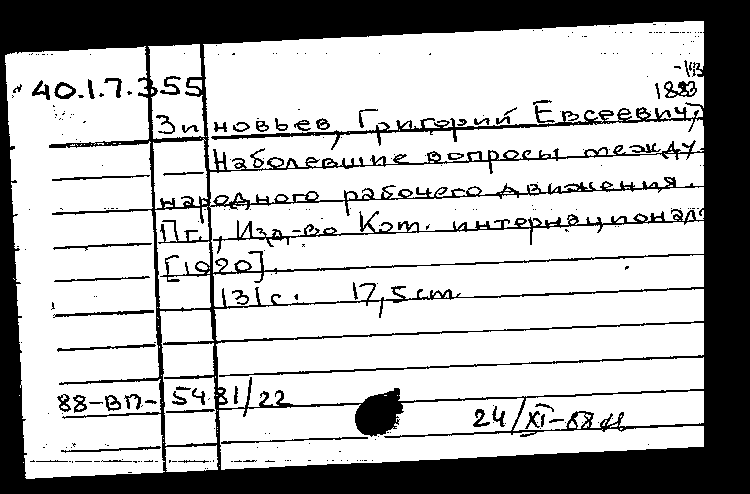 40.1.7.355
1883
Зиновьев, Григорий Евсеевич,
Наболевшие вопросы между-
народного рабочего движения.
Пг., Изд-во Ком. интернационал
[1920].
131с. 17,5см.
88-ВП-5481/22
24/XI-88